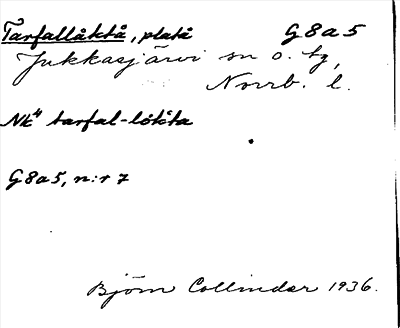 Tarfallåktå, platå G8a5
Jukkasjärvi sn o. tg,
Norrb. l.
Nk" tarfal-lòkta
G8a5, n:r 7
Björn Collinder 1936.